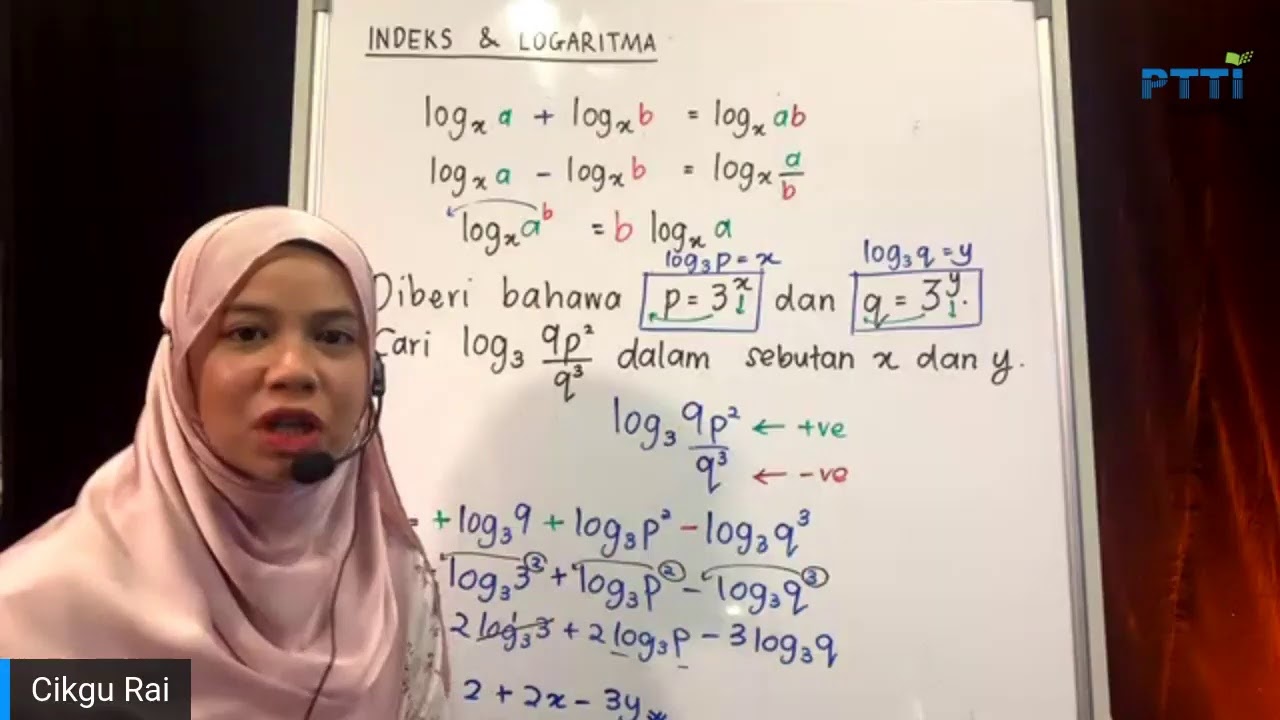 INDEKS & LOGARITMA
PTTI
logₓ a + logₓ b = logₓ ab
logₓ a - logₓ b = logₓ a/b
logₓ aᵇ = b logₓ a
log₃p = x log₃q = y
Diberi bahawa p = 3ˣ dan q = 3ʸ.
Cari log₃ 9p²/q³ dalam sebutan x dan y.
log₃ 9p²/q³ ← +ve
← -ve
= + log₃9 + log₃p² - log₃q³
log₃3² + log₃p² - log₃q³
2 log₃3 1 + 2 log₃p - 3 log₃q
2 + 2x - 3y
Cikgu Rai